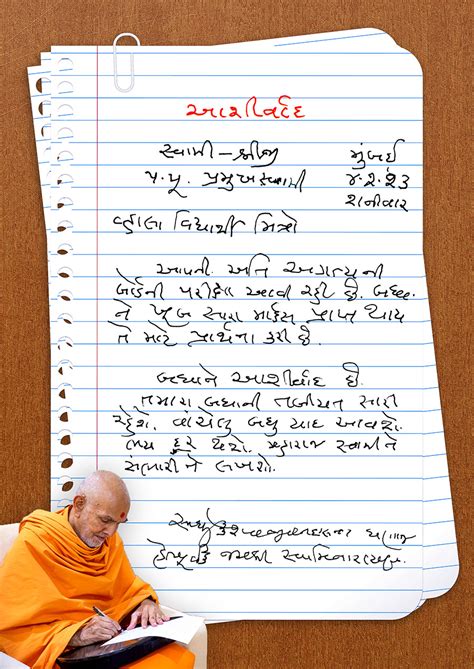 આશીર્વાદ
સ્વામી-શ્રીજી મુંબઈ
પ.પૂ. પ્રમુખસ્વામી ૪.૨.૨૩
શનીવાર
વ્હાલા વિદ્યાર્થી મિત્રો
આપની અતિ અગત્યની
બોર્ડની પરીક્ષા આવી રહી છે. બધા
ને ખુબ સારા માર્કસ પ્રાપ્ત થાય
તે માટે પ્રાર્થના કરી છે.
બધાને આશીર્વાદ છે.
તમારા બધાની તબીયત સારી
રહેશે. વાંચેલુ બધુ યાદ આવશે.
ભય દૂર થશે. મહારાજ સ્વામીને
સંભારીને લખશો.
જયશ્રી સ્વામિનારાયણ